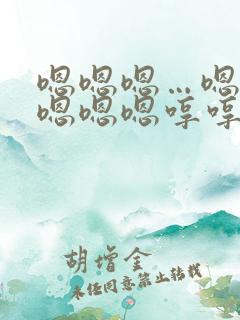 嗯嗯嗯…嗯
嗯嗯嗯哼哼
胡增金
未经同意禁止转载